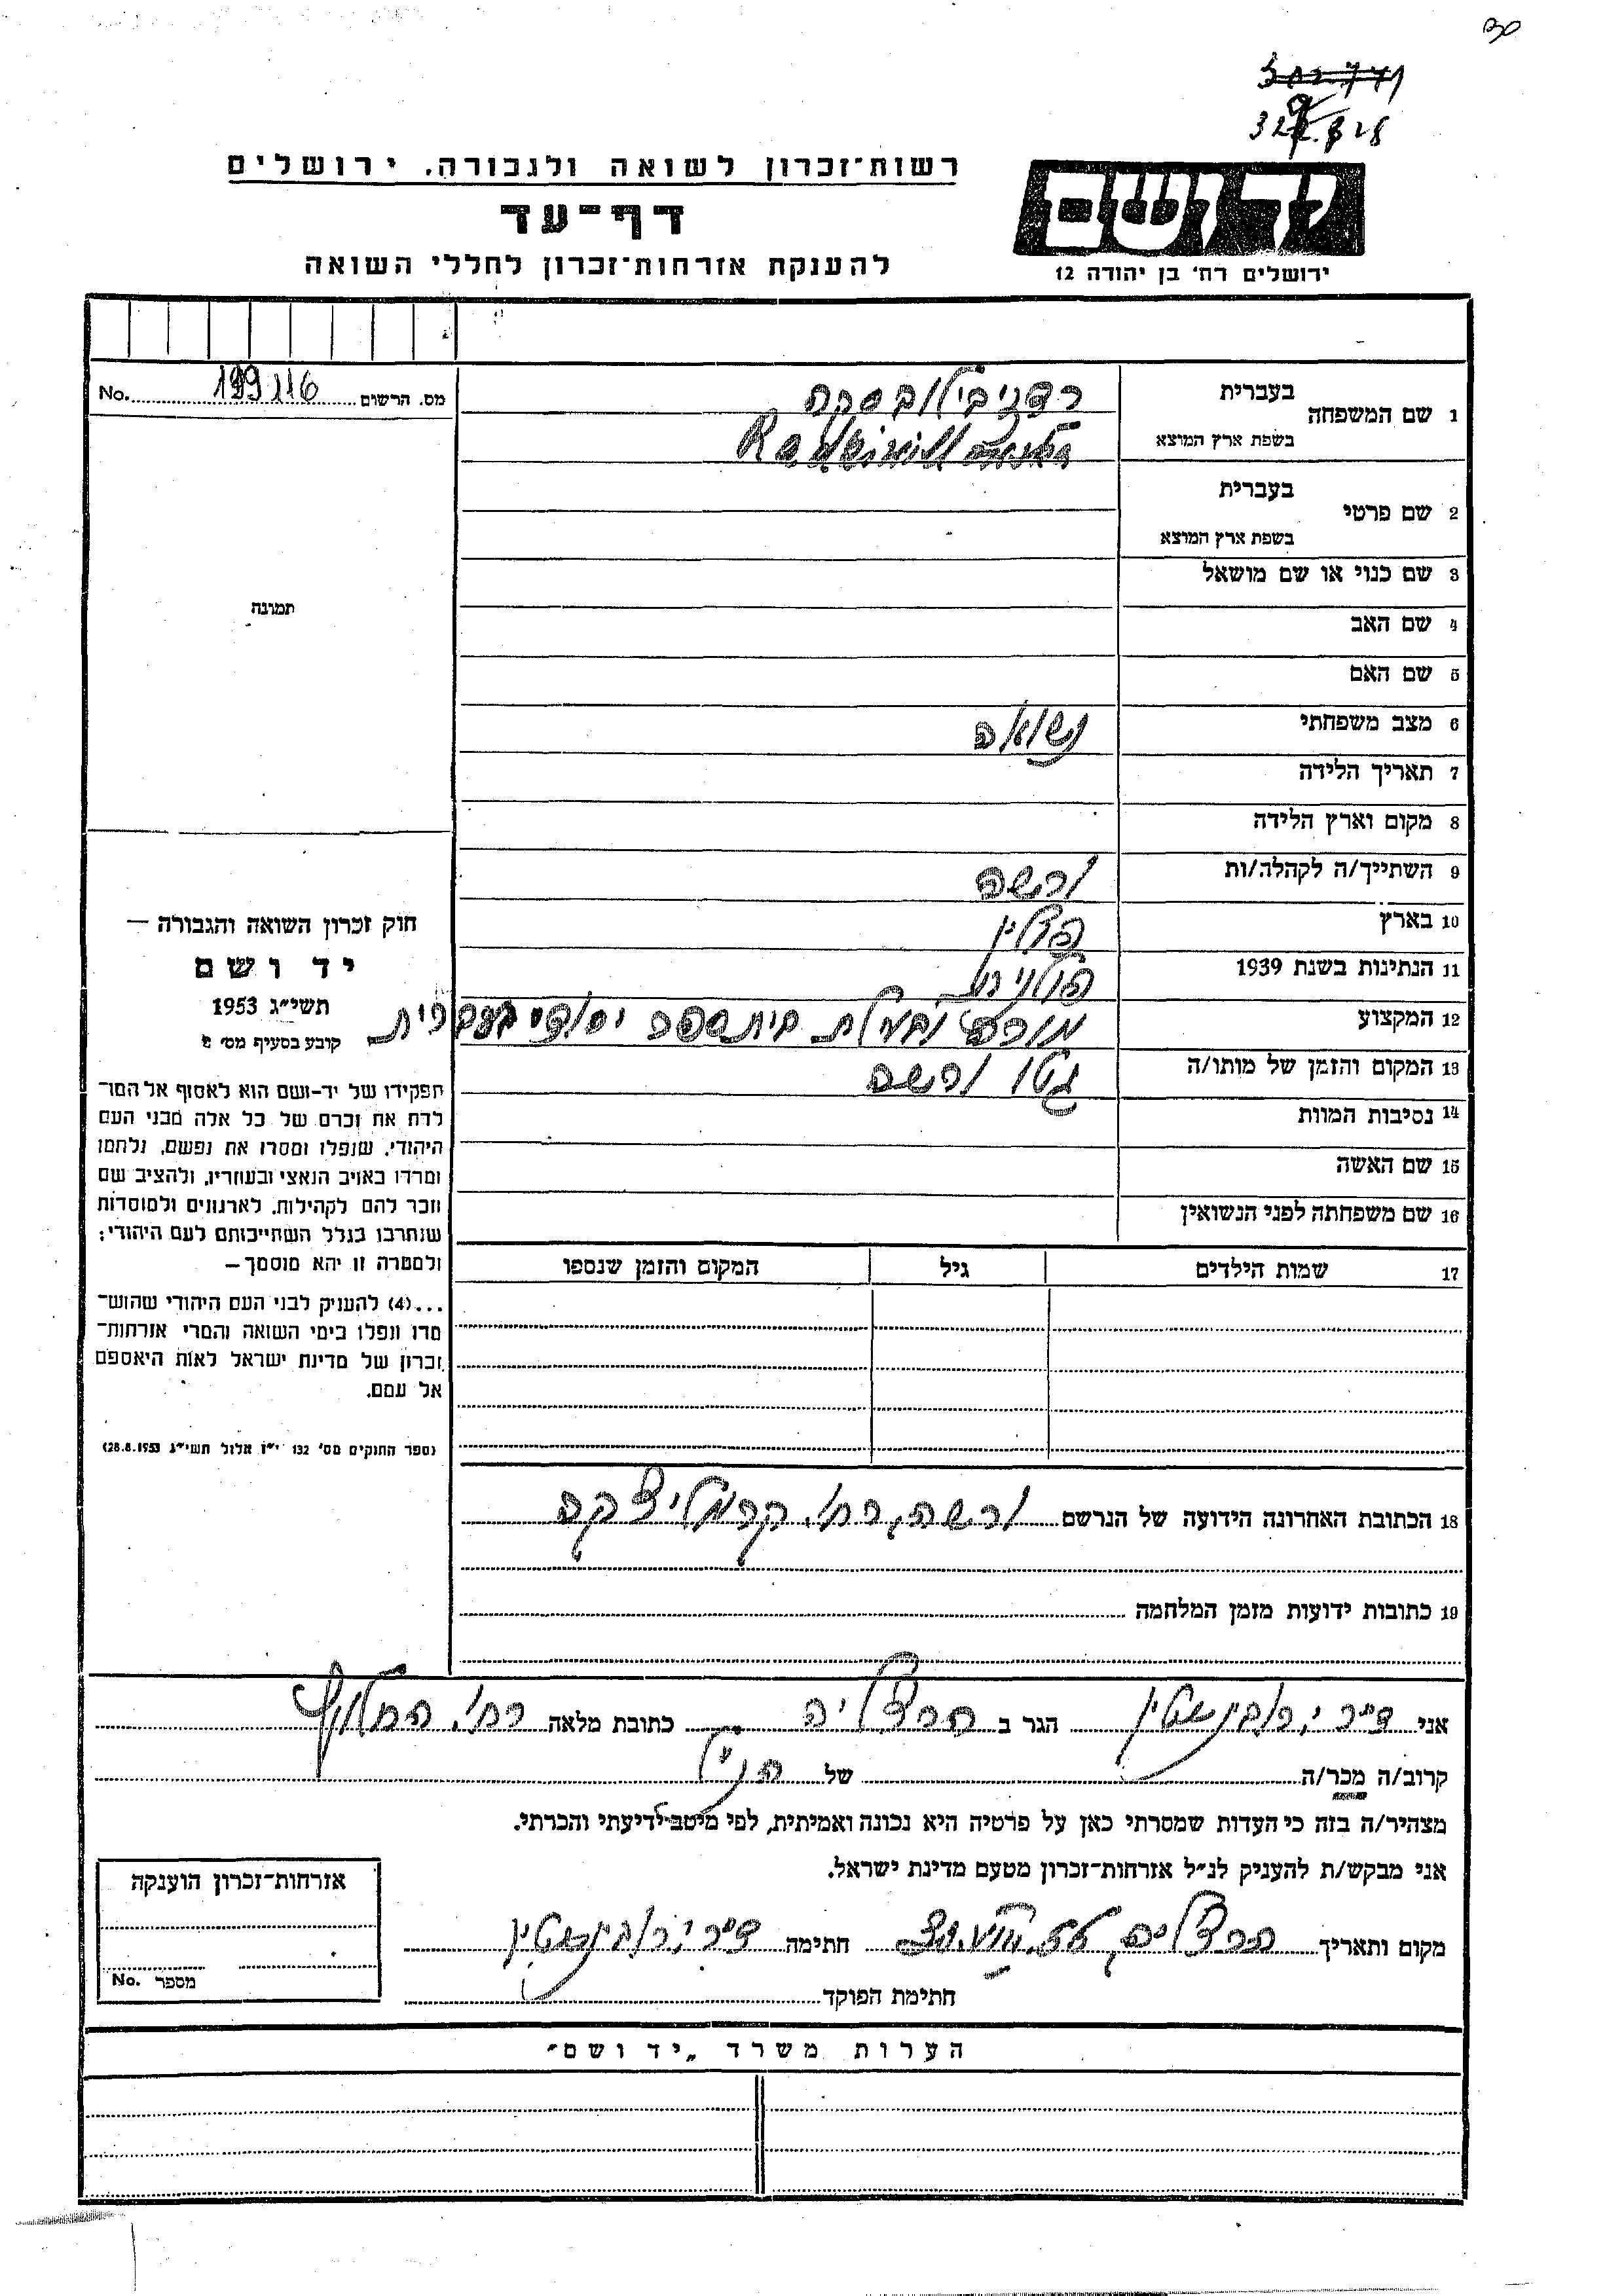 רשות־זכרון לשואה ולגבורה, ירושלים
דף־עד
להענקת אזרחות־זכרון לחללי השואה
ידושם
ירושלים רח' בן יהודה 12
מס. הרשום 199116 No.
בעברית
1 שם המשפחה
רדזיבילובסקה
בשפת ארץ המוצא
בעברית
2 שם פרטי
בשפת ארץ המוצא
3 שם כנוי או שם מושאל
תמונה
4 שם האב
5 שם האם
6 מצב משפחתי נשואה
7 תאריך הלידה
8 מקום וארץ הלידה
9 השתייך/ה לקהלה/ות ורשה
10 בארץ פולין
11 הנתינות בשנת 1939 פולנית
12 המקצוע מורה ובעלת בית ספר יסודי בעברית
13 המקום והזמן של מותו/ה גטו ורשה
14 נסיבות המוות
15 שם האשה
16 שם משפחתה לפני הנשואין
17 שמות הילדים גיל המקום והזמן שנספו
חוק זכרון השואה והגבורה —
יד ושם
תשי"ג 1953
קובע בסעיף מס'
תפקידו של יד־ושם הוא לאסוף אל המו־
לדת את זכרם של כל אלה מבני העם
היהודי, שנפלו ומסרו את נפשם, נלחמו
ומרדו באויב הנאצי ובעוזריו, ולהציב שם
וזכר להם לקהילות, לארגונים ולמוסדות
שנחרבו בגלל השתייכותם לעם היהודי;
ולמטרה זו יהא מוסמך —
...(4) להעניק לבני העם היהודי שהוש־
מדו ונפלו בימי השואה והמרי אזרחות־
זכרון של מדינת ישראל לאות היאספם
אל עמם.
(ספר החוקים מס' 132 י"ז אלול תשי"ג 28.8.1953)
18 הכתובת האחרונה הידועה של הנרשם ורשה, רח. קרמליצקה
19 כתובות ידועות מזמן המלחמה
אני ד"ר י. רובינשטין הגר ב הרצליה כתובת מלאה רח'
קרוב/ה מכר/ה של הנ"ל
מצהיר/ה בזה כי העדות שמסרתי כאן על פרטיה היא נכונה ואמיתית, לפי מיטב ידיעתי והכרתי.
אני מבקש/ת להעניק לנ"ל אזרחות־זכרון מטעם מדינת ישראל.
מקום ותאריך הרצליה, חתימה ד"ר י. רובינשטין
חתימת הפוקד
אזרחות־זכרון הוענקה
מספר No.
הערות משרד „יד ושם"